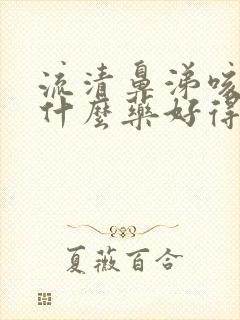 流清鼻涕咳
什麼藥好得
夏薇百合